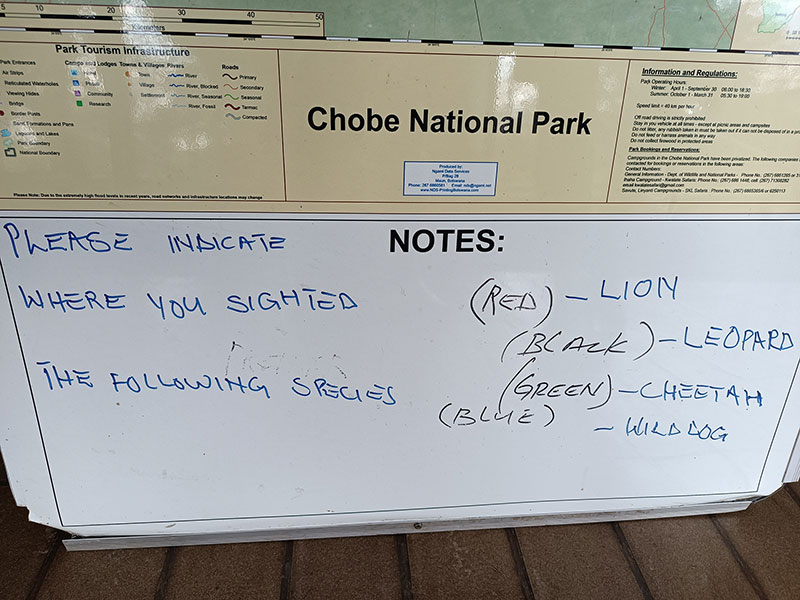 5 10 20 30 40 50
Kilometers
Park Tourism Infrastructure
Park Entrances
Air Strips
Reticulated Waterholes
Viewing Hides
Bridge
Border Posts
Salt Formations and Pans
Lagoons and Lakes
Park Boundary
National Boundary
Camps and Lodges
Hotel
Community
Research
Towns & Villages
Town
Village
Settlement
Rivers
River
River, Blocked
River, Seasonal
River, Fossil
Roads
Primary
Secondary
Seasonal
Tarmac
Compacted
Please Note: Due to the extremely high flood levels in recent years, road networks and infrastructure locations may change
Chobe National Park
Produced by:
Ngami Data Services
P/Bag 28
Maun, Botswana
Information and Regulations:
Park Operating Hours:
Winter: April 1 - September 30 06:00 to 18:30
Summer: October 1 - March 31 05:30 to 19:00
Speed limit = 40 km per hour
Off road driving is strictly prohibited
Stay in you vehicle at all times - except at picnic areas and campsites
Do not litter, any rubbish taken in must be taken out if it can not be disposed of in a
Do not feed or harrass animals in any way
Do not collect firewood in protected areas
Park Bookings and Reservations:
Campgrounds in the Chobe National Park have been privatized. The following companies
contacted for bookings or reservations in the following areas:
Contact Numbers:
General Information - Dept. of Wildlife and National Parks -
NOTES:
PLEASE INDICATE
WHERE YOU SIGHTED
THE FOLLOWING SPECIES
(RED) - LION
(BLACK) - LEOPARD
(GREEN) - CHEETAH
(BLUE) - WILD DOG